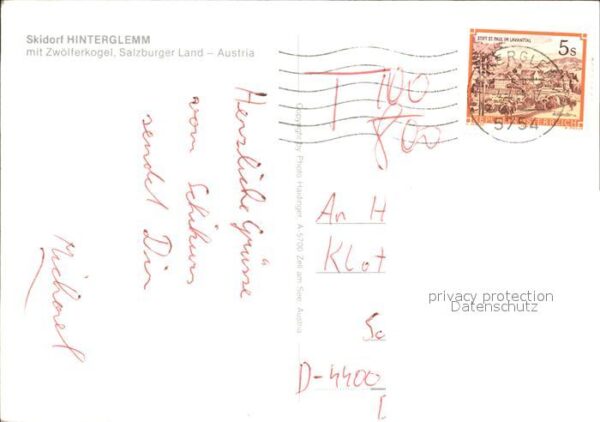 Skidorf HINTERGLEMM
mit Zwölferkogel, Salzburger Land – Austria
Herzliche Grüsse
vom Schikurs
sendet Dir
Michael
Copyright by Photo Haidinger, A 5700 Zell am See, Austria
T 100
800
STIFT ST. PAUL IM LAVANTTAL
5s
REPUBLIK ÖSTERREICH
5754
An H
Klot
D-4400
privacy protection
Datenschutz